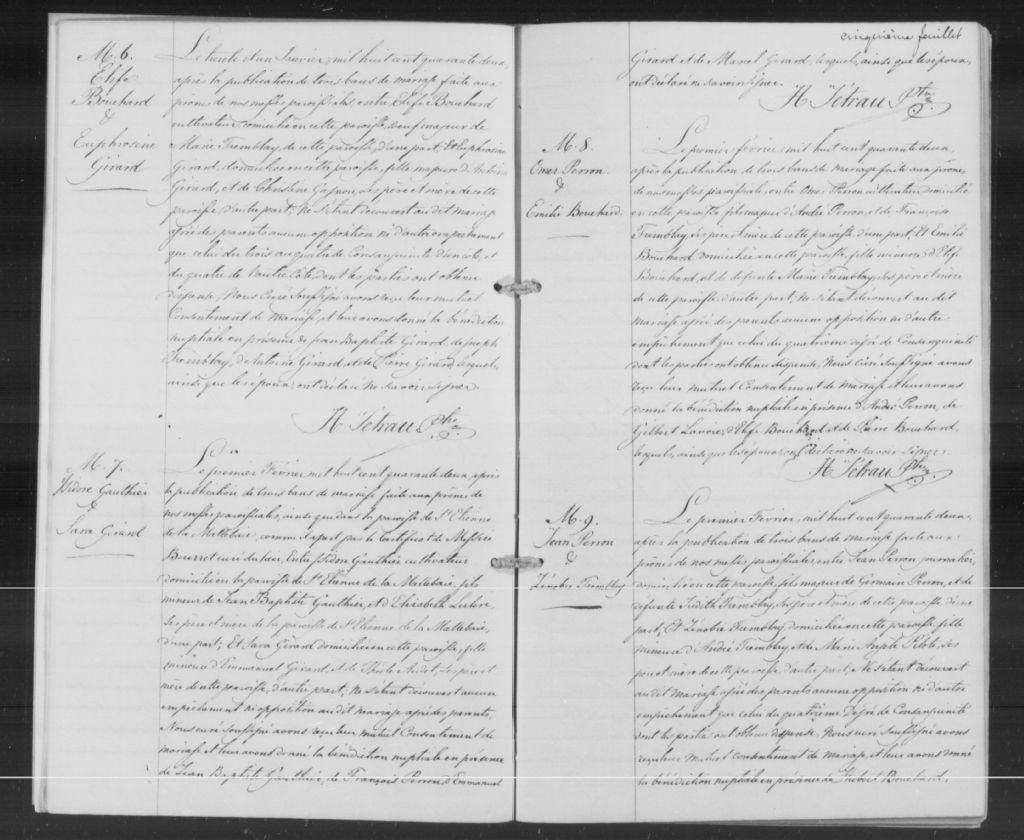 M. 6.
Elife
Bouchard
&
Euphrosine
Girard
Le trente et un Janvier, mil huit cent quarante deux,
après la publication de trois bans de mariage faite aux
prônes de nos messes paroissiales, entre Elife Bouchard
cultivateur domicilié en cette paroisse, veuf majeur de
Marie Tremblay, de cette paroisse, d'une part; Et Euphrosine
Girard, domiciliée en cette paroisse, fille majeure d'Antoine
Girard, et de Christine Gagnon, ses père et mère de cette
paroisse d'autre part; ne s'étant découvert au dit mariage
après des parents aucune opposition ni d'autre empêchement
que celui du trois au quatre de Consanguinité d'un coté, et
du quatre de l'autre Coté, dont les parties ont obtenu
dispense, Nous Curé Soussigné avons reçu leur mutuel
Consentement de Mariage, et leur avons donné la bénédiction
nuptiale en présence de Jean Baptiste Girard, de Joseph
Tremblay, d'Antoine Girard, et de Claire Girard, lesquels,
ainsi que les époux, ont déclaré ne savoir signer.
H Tétrau Ptre
M. 7.
Isidore Gauthier
&
Sara Girard
Le premier Février mil huit cent quarante deux, après
la publication de trois bans de mariage faite aux prônes de
nos messes paroissiales, ainsi que dans la paroisse de St Etienne
de la Mallebaie, comme il apert par le Certificat de Messire
Bourret curé du lieu, Entre Isidore Gauthier cultivateur
domicilié en la paroisse de St Etienne de la Mallebaie, fils
mineur de Jean Baptiste Gauthier, et d'Elizabeth
ses père et mère de la paroisse de St Etienne de la Mallebaie,
d'une part; Et Sara Girard domiciliée en cette paroisse, fille
mineure d'Emmanuel Girard, et de Audet ses père et
mère de cette paroisse, d'autre part; ne s'étant découvert aucun
empêchement ni opposition au dit mariage après des parents,
Nous curé Soussigné avons reçu leur mutuel Consentement de
mariage et leur avons donné la bénédiction nuptiale en présence
de Jean Baptiste Gauthier, de François Perron, d'Emmanuel
cinquième feuillet
Girard et de Marcel Girard, lesquels, ainsi que les époux,
ont déclaré ne savoir signer.
H Tétrau Ptre
M. 8.
Omer Perron
&
Emilie Bouchard.
Le premier février, mil huit cent quarante deux,
après la publication de trois bans de mariage faite aux prônes
de nos messes paroissiales, entre Omer Perron cultivateur domicilié
en cette paroisse fils majeur d'André Perron, et de Françoise
Tremblay, ses père et mère de cette paroisse d'une part; Et Emilie
Bouchard domiciliée en cette paroisse, fille mineure d'Elife
Bouchard, et de défunte Marie Tremblay, ses père et mère
de cette paroisse d'autre part; ne s'étant découvert au dit
mariage après des parents aucune opposition ni d'autre
empêchement que celui du quatrième degré de Consanguinité
dont les parties ont obtenu dispense, Nous Curé Soussigné avons
reçu leur mutuel Consentement de mariage et leur avons
donné la bénédiction nuptiale en présence d'André Perron, de
Gilbert Lavoie, d'Elife Bouchard et de Pierre Bouchard,
lesquels, ainsi que les époux, ont déclaré ne savoir signer
H Tétrau Ptre
M. 9.
Jean Perron
&
Zénobie Tremblay
Le premier Février, mil huit cent quarante deux,
après la publication de trois bans de mariage faite aux
prônes de nos messes paroissiales, entre Jean Perron, journalier,
domicilié en cette paroisse, fils majeur de Germain Perron, et de
défunte Judith Tremblay, ses père et mère de cette paroisse, d'une
part; Et Zénobie Tremblay, domiciliée en cette paroisse, fille
mineure d'André Tremblay, et de Marie Pilote, ses
père et mère de cette paroisse, d'autre part; Ne s'étant découvert
au dit mariage après des parents aucune opposition ni d'autre
empêchement que celui du quatrième Degré de Consanguinité
dont les parties ont obtenu dispense, Nous curé Soussigné avons
reçu leur mutuel consentement de mariage, et leur avons donné
la bénédiction nuptiale en présence de Hubert Bouchard,